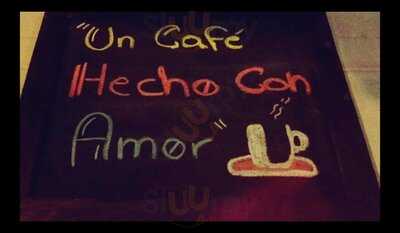 "Un Café
Hecho Con
Amor"